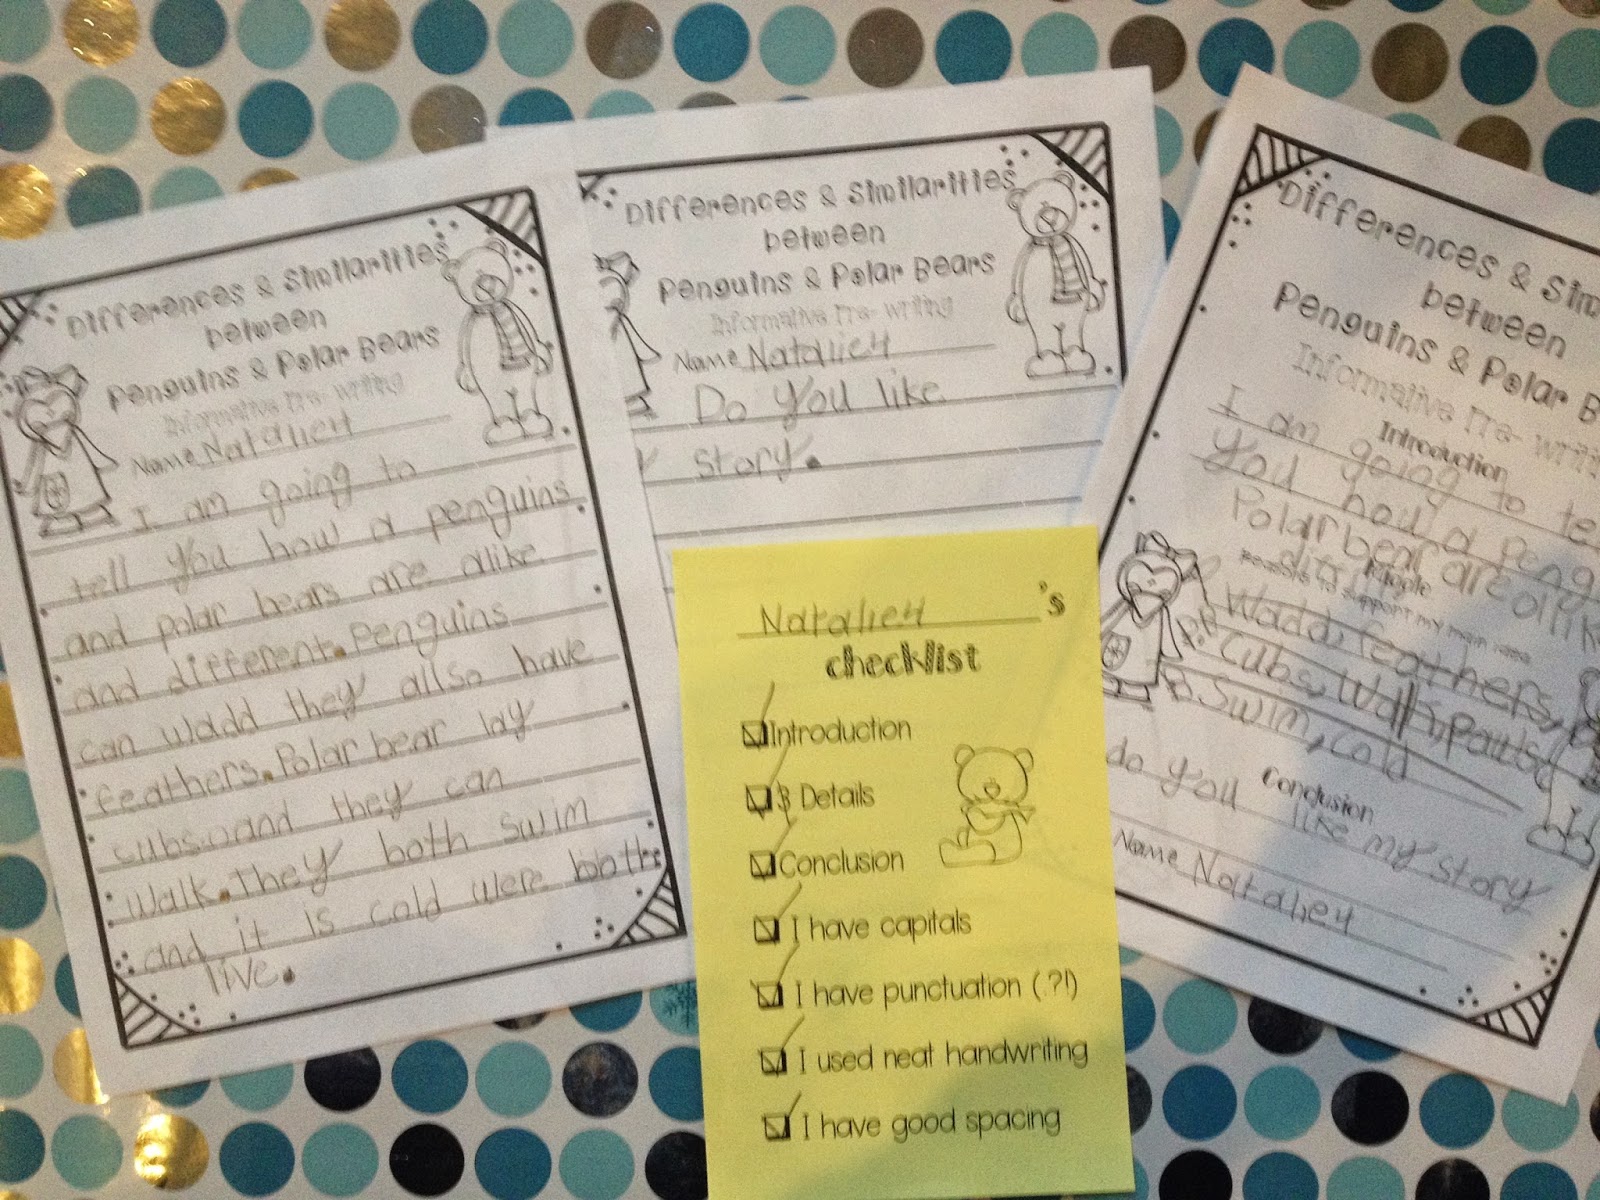 Differences & Similarities
between
Penguins & Polar Bears
Informative Pre-writing
Name Natalie H
I am going to
tell you how a penguins
and polar bears are alike
and different. Penguins
can wadd they allso have
feathers. Polar bear lay
cubs. and they can
walk. They both swim
and it is cold were both
live.
Differences & Similarities
between
Penguins & Polar Bears
Informative Pre-writing
Name Natalie H
Do you like
y story.
Natalie H 's
checklist
Introduction
3 Details
Conclusion
I have capitals
I have punctuation (.?!)
I used neat handwriting
I have good spacing
Differences & Sim
between
Penguins & Polar B
Informative Pre-writin
Introduction
I am going to te
you how a peng
Polar bear are alik
Middle
Reasons to support my main idea
P. Wadd, feathers,
P.B. Cubs, Walk, Pawls
B. Swim, cold
Conclusion
do you like my story
Name Natalie H